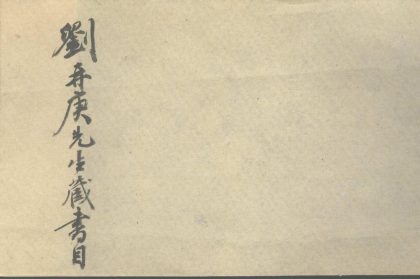 劉再庚先生藏書目